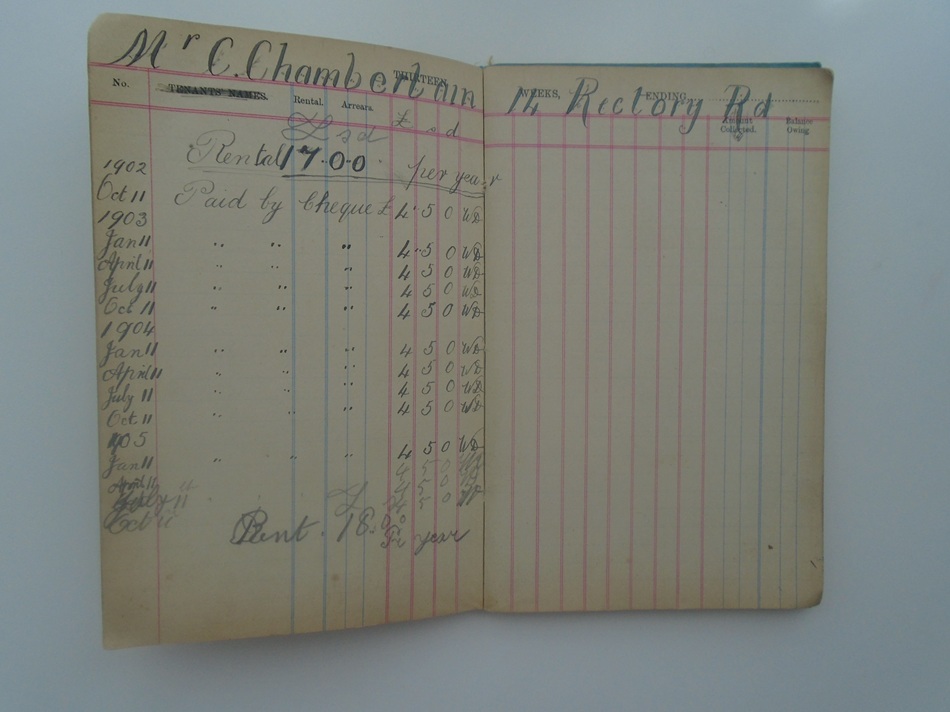 Mr C. Chamberlain 14 Rectory Rd
THIRTEEN WEEKS, ENDING
No. TENANTS' NAMES. Rental. Arrears. Amount Collected. Balance Owing
£ s d £ s d
Rental 17.0.0 per year
1902
Oct 11 Paid by Cheque £ 4 5 0 WD
1903
Jan 11 " " " 4 5 0 WD
April 11 " " " 4 5 0 WD
July 11 " " " 4 5 0 WD
Oct 11 " " " 4 5 0 WD
1904
Jan 11 " " " 4 5 0 WD
April 11 " " " 4 5 0 WD
July 11 " " " 4 5 0 WD
Oct 11 " " " 4 5 0 WD
1905
Jan 11 " " " 4 5 0 WD
April 11 4 5 0
July 11 4 5 0
Oct 11 4 5 0
Rent. 18.0.0
year